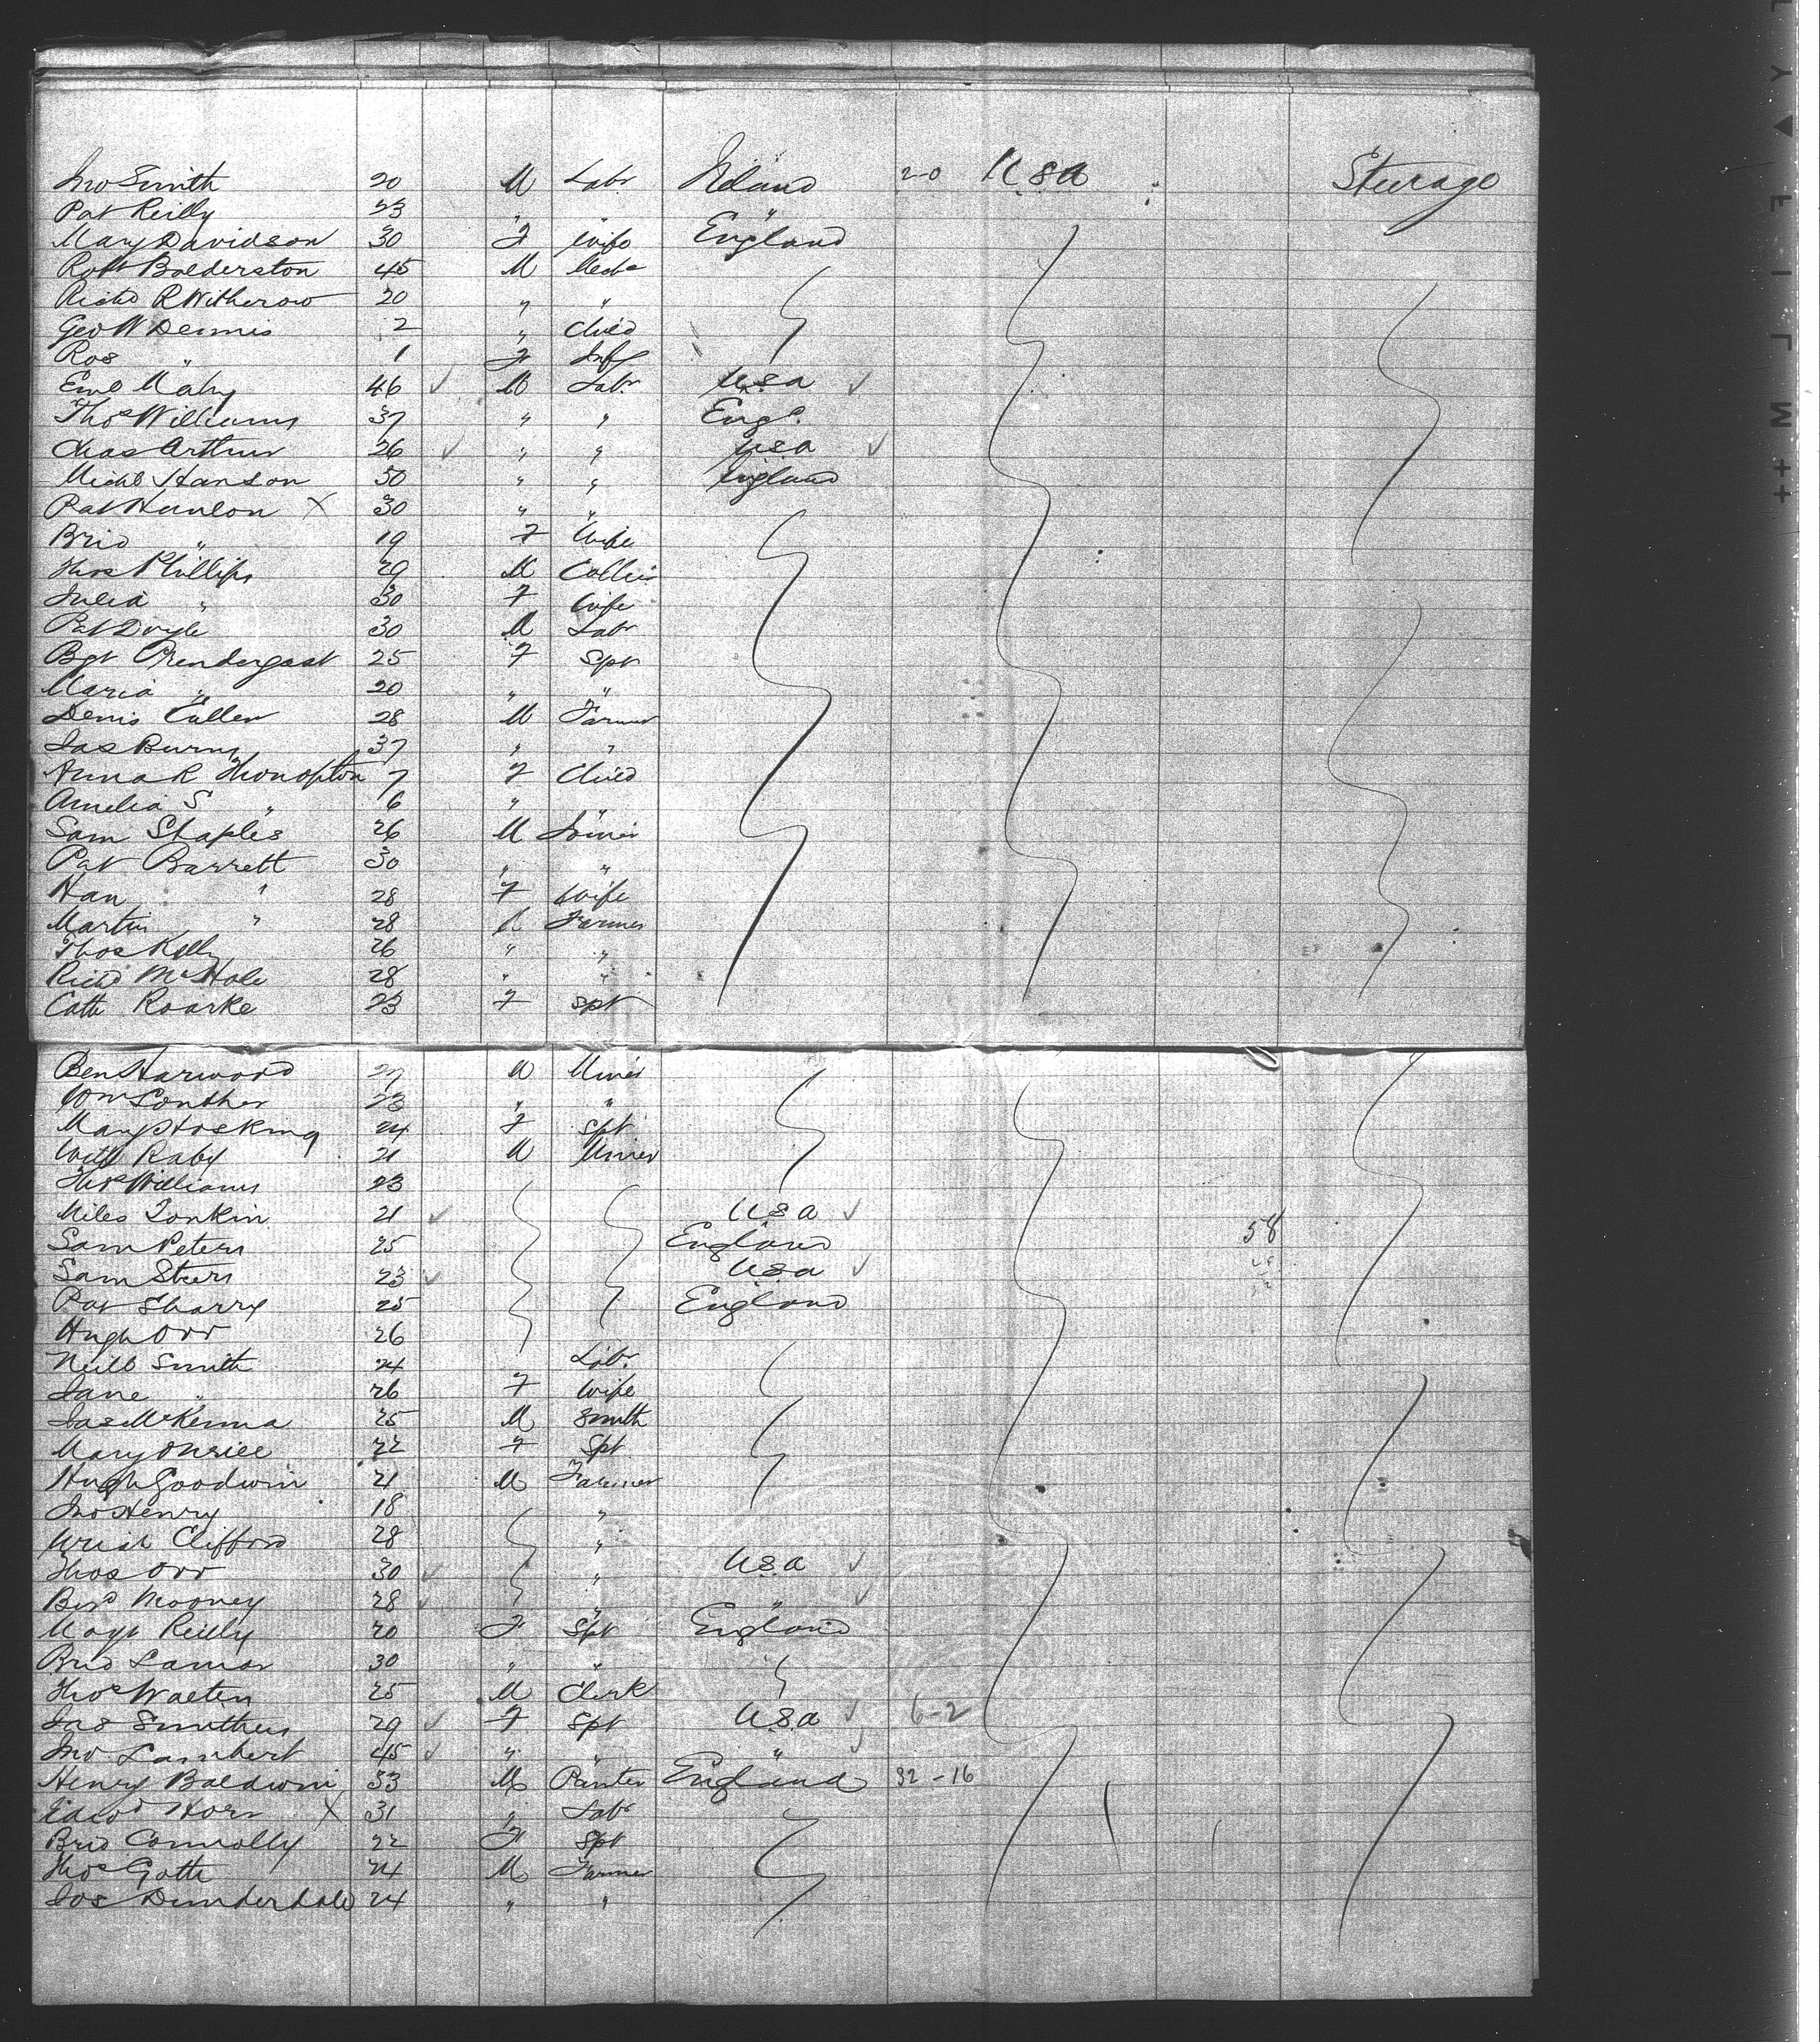 Jno Smith 20 M Labr Ireland 2-0 USA Steerage
Pat Reilly 23 " " "
Mary Davidson 30 F Wife England
Robt Balderston 45 M Mech
Richd R Witherow 20 " "
Geo W Dennis 2 " Child
Ros " 1 F Inft
46 ✓ M Labr USA ✓
Thos Williams 37 " " Engd.
Chas Arthur 26 ✓ " " USA ✓
Michl Hanson 50 " " England
Pat Hanlon X 30 " "
Brid " 19 F Wife
Thos Phillips 29 M Collier
Julia " 30 F Wife
Pat Doyle 30 M Labr
Bgt Prendergast 25 F Spt
Maria " 20 " "
Denis Cullen 28 M Farmer
Jas Burns 37 " "
Anna R Thompston 7 F Child
Amelia S " 6 " "
Sam Staples 26 M Joiner
Pat Barrett 30 " "
Han " 28 F Wife
Martin " 28 M Farmer
Thos Kelly 26 " "
Richd McHale 28 " "
Cath Roarke 23 F Spt
Ben Harwood 27 M Miner
Wm Lonther 23 " "
Mary Hosking 24 F Spt
Will Raby 21 M Miner
Thos Williams 23
Miles Tonkin 21 ✓ USA ✓
Sam Peters 25 England 58
Sam Steers 23 ✓ USA ✓
Pat Sharry 25 England
Hugh Orr 26
Neill Smith 24 Labr.
Jane " 26 F Wife
Jas McKenna 25 M Smith
Mary 22 F Spt
Hugh Goodwin 21 M Farmer
Jno Henry 18 "
Clifford 28 "
Thos Orr 30 ✓ " USA ✓
Bernd Mooney 28 ✓ " " ✓
Margt Reilly 20 F Spt England
Brid Lamor 30 " "
Thos Walten 25 M Clerk
Jas Smithers 29 ✓ F Spt USA ✓ 6-2
Jno Lambert 45 ✓ " " " ✓
Henry Baldwin 33 M Painter England 32-16
Edwd Horn X 31 " Labr
Brid Connolly 22 F Spt
Thos Goth 24 M Farmer
Jos Dunderdale 24 " "